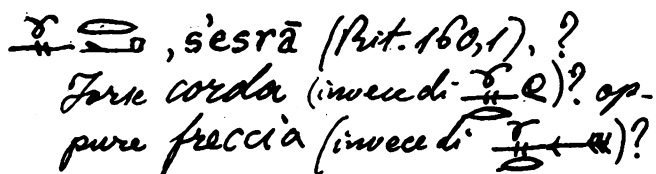 , s'esrā (Rit. 160,1), ?
Forse corda (invece di )? op-
pure freccia (invece di )?